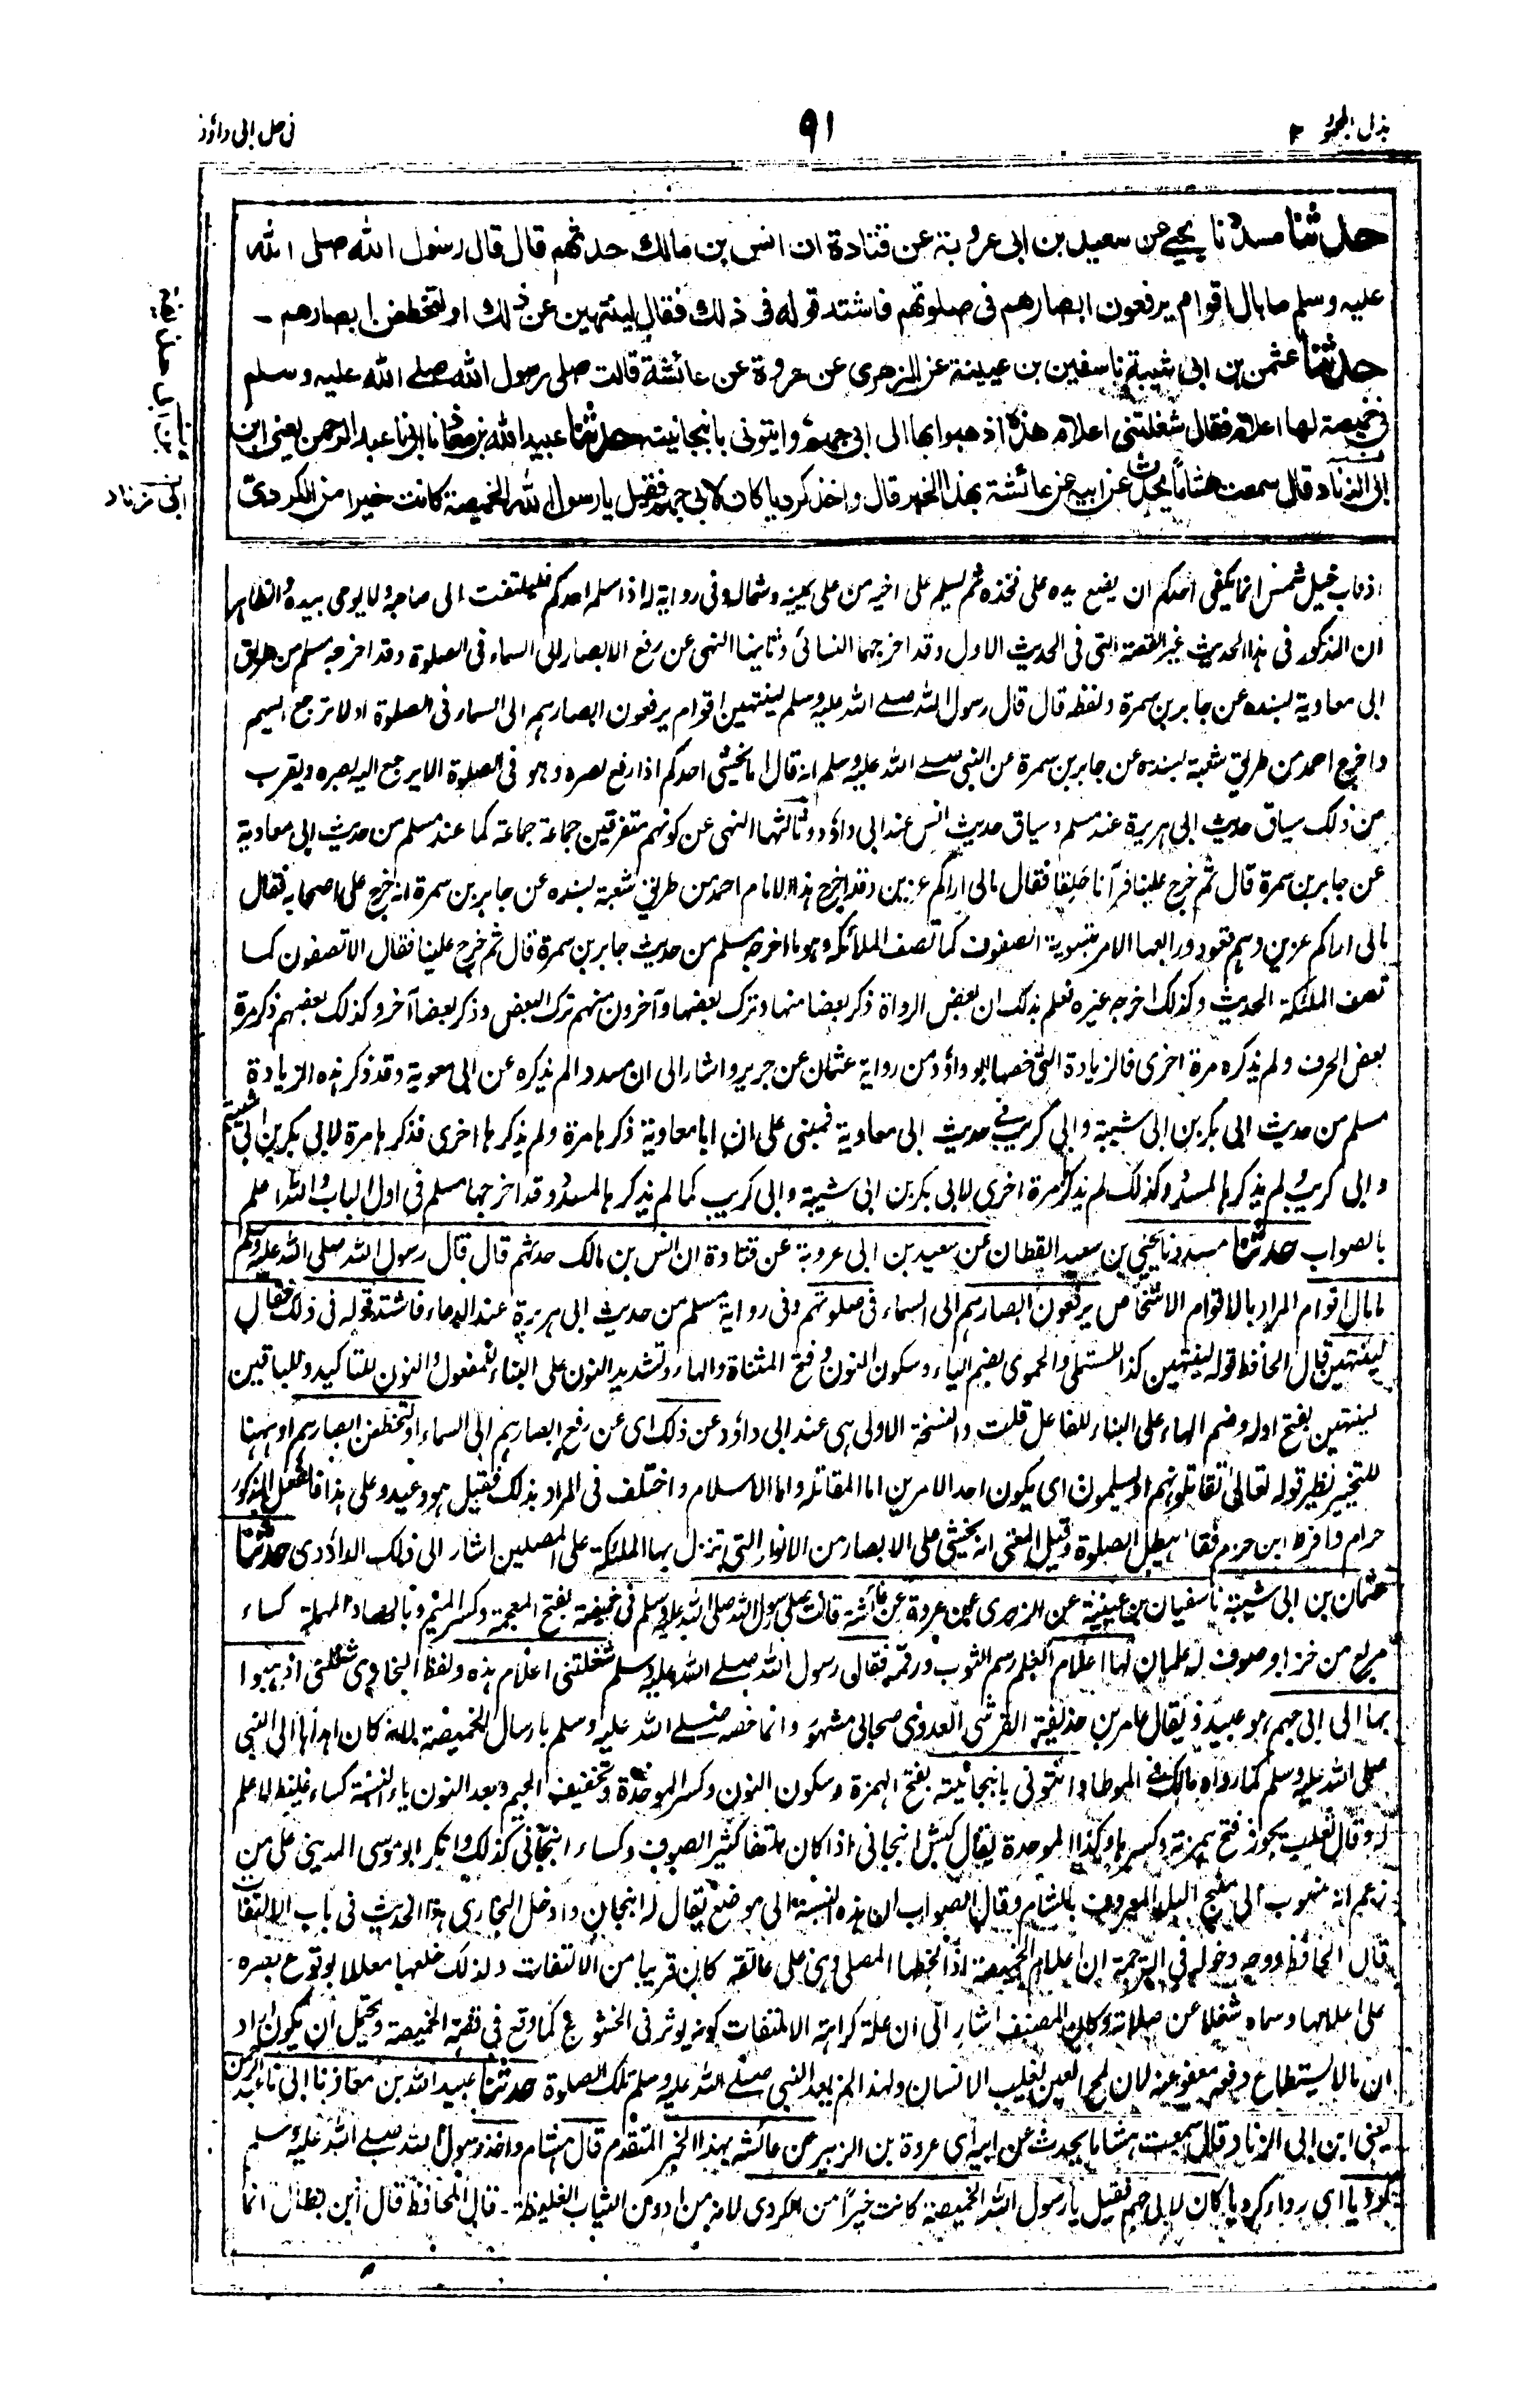 بذل المجهود ٢
٩١
فى حل ابى داؤد
حدثنا مسدد نا يحيى عن سعيد بن ابى عروبة عن قتادة ان انس بن مالك حدثهم قال قال رسول الله صلى الله
عليه وسلم ما بال اقوام يرفعون ابصارهم فى صلوتهم فاشتد قوله فى ذلك فقال لينتهين عن ذلك او لتخطفن ابصارهم ـ
حدثنا عثمن بن ابى شيبة نا سفين بن عيينة عن الزهرى عن عروة عن عائشة قالت صلى رسول الله صلى الله عليه وسلم
فى خميصة لها اعلام فقال شغلتنى اعلام هذه اذهبوا بها الى ابى جهم وايتونى بانبجانيته حدثنا عبيد الله بن معاذ نا ابى نا عبد الرحمن يعنى ابن
ابى الزناد قال سمعت هشاما يحدث عن ابيه عن عائشة بهذا الخبر قال واخذ كرديا كان لابى جهم فقيل يا رسول الله الخميصة كانت خيرا من الكردى
ابى زناد
اذناب خيل شمس انما يكفى احدكم ان يضع يده على فخذه ثم يسلم على اخيه من على يمينه وشماله وفى رواية له اذا سلم احدكم فليلتفت الى صاحبه ولا يومى بيده والظاهر
ان المذكور فى هذا الحديث غير القصة التى فى الحديث الاول وقد اخرجهما النسائى وثانيها النهى عن رفع الابصار الى السماء فى الصلوة وقد اخرجه مسلم من طريق
ابى معاوية بسنده عن جابر بن سمرة ولفظه قال قال رسول الله صلى الله عليه وسلم لينتهين اقوام يرفعون ابصارهم الى السماء فى الصلوة اولا ترجع اليهم
واخرج احمد من طريق شعبة بسنده عن جابر بن سمرة عن النبى صلى الله عليه وسلم انه قال اما يخشى احدكم اذا رفع بصره وهو فى الصلوة الا يرجع اليه بصره ويقرب
من ذلك سياق حديث ابى هريرة عند مسلم وسياق حديث انس عند ابى داؤد وثالثها النهى عن كونهم متفرقين جماعة جماعة كما عند مسلم من حديث ابى معاوية
عن جابر بن سمرة قال ثم خرج علينا فرآنا حلقا فقال مالى اراكم عزين وقد اخرج هذا الامام احمد من طريق شعبة بسنده عن جابر بن سمرة انه خرج على اصحابه فقال
مالى اراكم عزين وهم قعود ورابعها الامر بتسوية الصفوف كما تصف الملائكة وهو ما اخرجه مسلم من حديث جابر بن سمرة قال ثم خرج علينا فقال الا تصفون كما
تصف الملئكة الحديث وكذلك اخرجه غيره فعلم بذلك ان بعض الرواة ذكر بعضا منها وترك بعضها وآخرون منهم ترك البعض وذكر بعضا آخر وكذلك بعضهم ذكر مرة
بعض الحرف ولم يذكره مرة اخرى فالزيادة التى خصها ابو داؤد من رواية عثمان عن جرير واشار الى ان مسددا لم يذكره عن ابى معوية وقد ذكر هذه الزيادة
مسلم من حديث ابى بكر بن ابى شيبة وابى كريب فى حديث ابى معاوية فمبنى على ان ابا معاوية ذكرها مرة ولم يذكرها اخرى فذكرها مرة لابى بكر بن ابى شيبة
وابى كريب ولم يذكرها لمسدد وكذلك لم يذكر مرة اخرى لابى بكر بن ابى شيبة وابى كريب كما لم يذكرها لمسدد وقد اخرجها مسلم فى اول الباب والله اعلم
بالصواب حدثنا مسدد نا يحيى بن سعيد القطان عن سعيد بن ابى عروبة عن قتادة ان انس بن مالك حدثهم قال قال رسول الله صلى الله عليه وسلم
ما بال اقوام المراد بالاقوام الاشخاص يرفعون ابصارهم الى السماء فى صلوتهم وفى رواية مسلم من حديث ابى هريرة عند الدعاء فاشتد قوله فى ذلك فقال
لينتهين قال الحافظ قوله لينتهين كذا للمستملى والحموى بضم الياء وسكون النون وفتح المثناة والهاء وتشديد النون على البناء للمفعول والنون للتاكيد وللباقين
لينتهين بفتح اوله وضم الهاء على البناء للفاعل قلت والنسخة الاولى هى عند ابى داؤد عن ذلك اى عن رفع ابصارهم الى السماء او لتخطفن ابصارهم او ههنا
للتخيير نظير قوله تعالى تقاتلونهم او يسلمون اى يكون احد الامرين اما المقاتلة واما الاسلام واختلف فى المراد بذلك فقيل هو وعيد وعلى هذا فالفعل المذكور
حرام وافرط ابن حزم فقال يبطل الصلوة وقيل المعنى انه يخشى على الابصار من الانوار التى تنزل بها الملئكة على المصلين اشار الى ذلك الداؤدى حدثنا
عثمان بن ابى شيبة نا سفيان بن عيينة عن الزهرى عن عروة عن عائشة قالت صلى رسول الله صلى الله عليه وسلم فى خميصة بفتح المعجمة وكسر الميم وبالصاد المهملة كساء
مربع من خز او صوف له علمان لها اعلام العلم رسم الثوب ورقمه فقال رسول الله صلى الله عليه وسلم شغلتنى اعلام هذه ولفظ البخارى شغلتنى اذهبوا
بها الى ابى جهم هو عبيد ويقال عامر بن حذيفة القرشى العدوى صحابى مشهور وانما خصه صلى الله عليه وسلم بارسال الخميصة لانه كان اهداها الى النبى
صلى الله عليه وسلم كما رواه مالك فى الموطا وائتونى بانبجانية بفتح الهمزة وسكون النون وكسر الموحدة وتخفيف الجيم وبعد النون ياء النسبة كساء غليظ لا علم
له وقال ثعلب يجوز فتح همزته وكسرها وكذا الموحدة يقال كبش انبجانى اذا كان ملتفا كثير الصوف وكساء انبجانى كذلك وانكر ابو موسى المدينى على من
زعم انه منسوب الى منبج البلد المعروف بالشام وقال الصواب ان هذه النسبة الى موضع يقال له انبجان وادخل البخارى هذا الحديث فى باب الالتفات
قال الحافظ ووجه دخوله فى الترجمة ان اعلام الخميصة اذا لحظها المصلى وهى على عاتقه كان قريبا من الالتفات ولذلك خلعها معللا بوقوع بصره
على اعلامها وسماه شغلا عن صلاته وكان المصنف اشار الى ان علة كراهة الالتفات كونه يؤثر فى الخشوع كما وقع فى قصة الخميصة ويحتمل ان يكون اراد
ان ما لا يستطاع دفعه معفو عنه لان لمح العين يغلب الانسان ولهذا لم يعد النبى صلى الله عليه وسلم تلك الصلوة حدثنا عبيد الله بن معاذ نا ابى نا عبد الرحمن
يعنى ابن ابى الزناد قال سمعت هشاما يحدث عن ابيه اى عروة بن الزبير عن عائشة بهذا الخبر المتقدم قال هشام واخذ رسول الله صلى الله عليه وسلم
كرديا اى رداء كرديا كان لابى جهم فقيل يا رسول الله الخميصة كانت خيرًا من الكردى لانه من ادون الثياب الغليظة ـ قال الحافظ قال ابن بطال انما